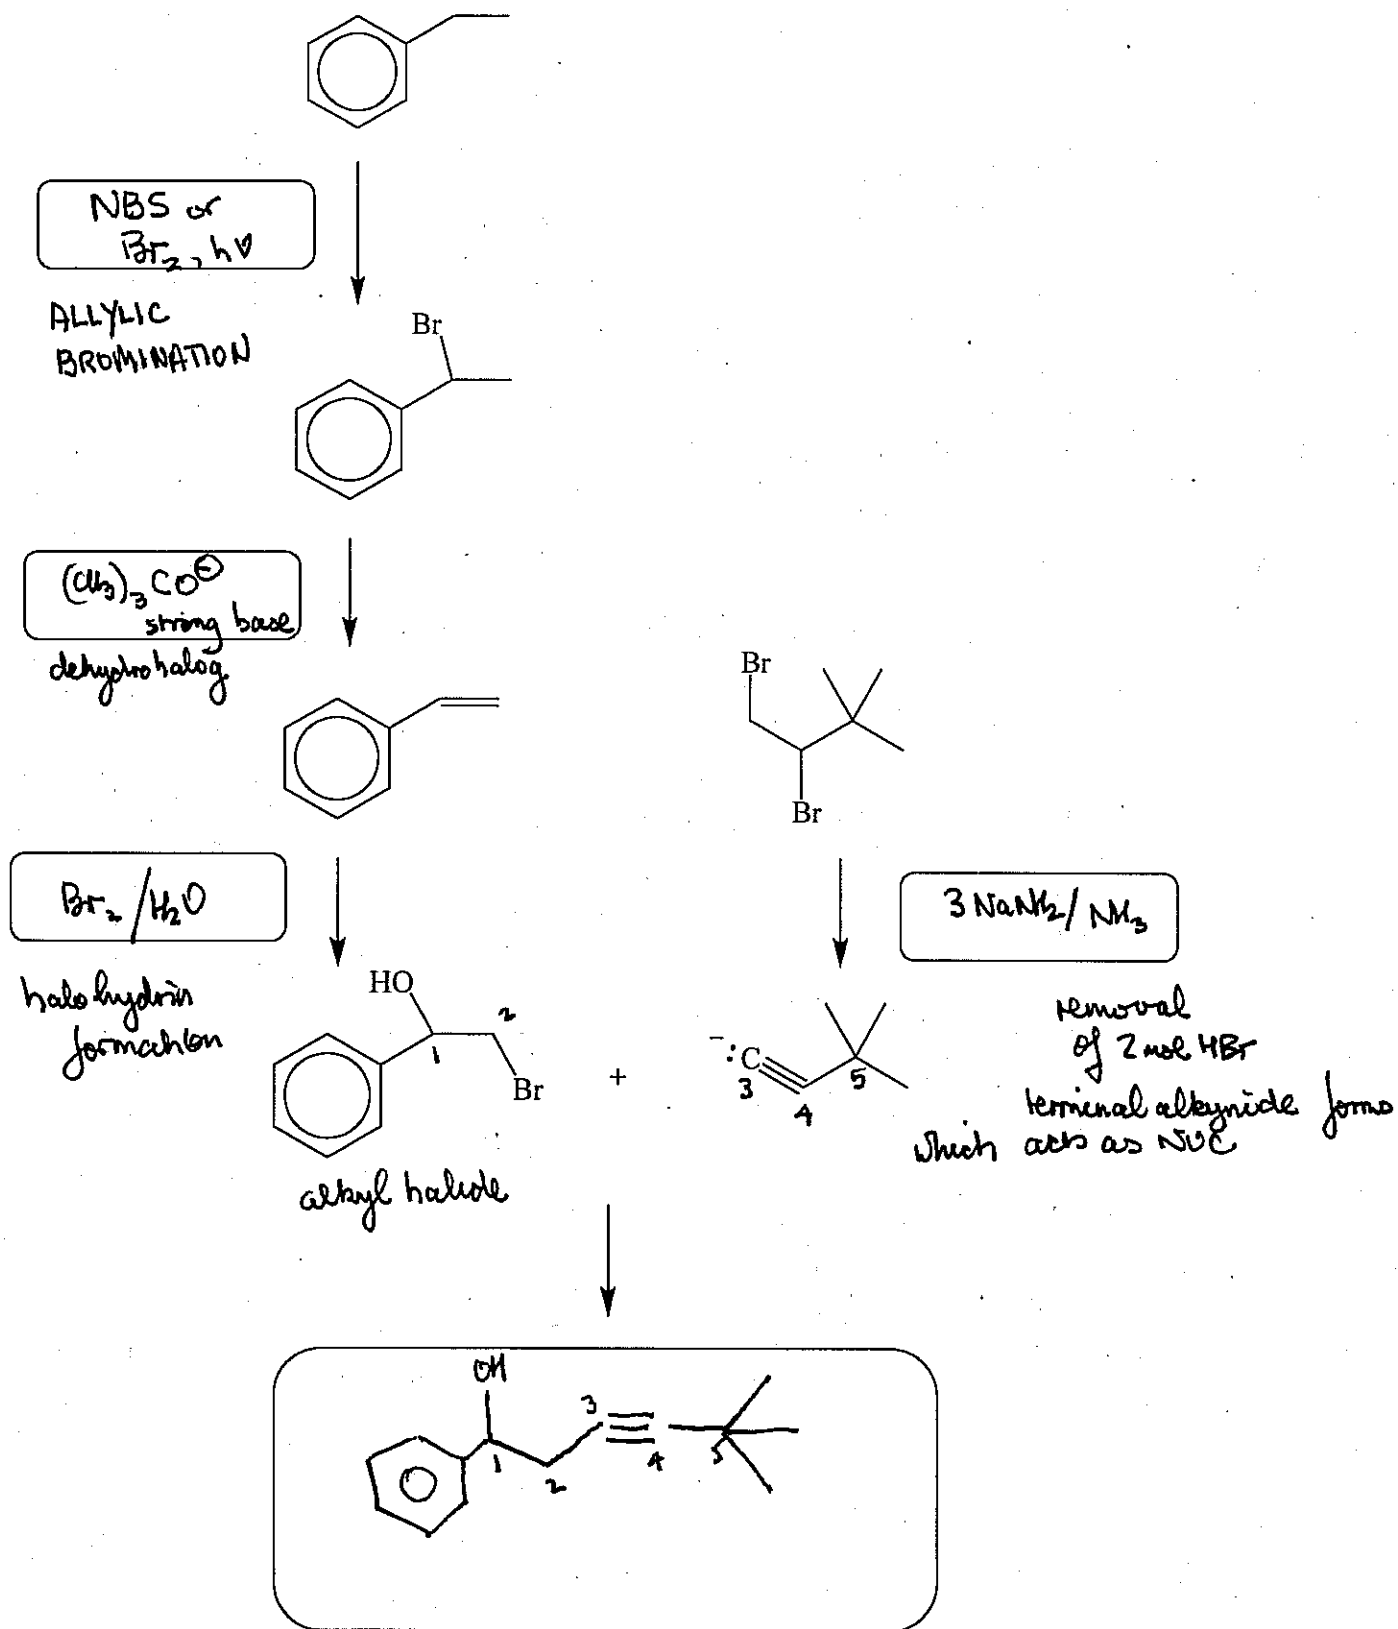 NBS or
Br₂, hν
ALLYLIC
BROMINATION
Br
(CH₃)₃CO⊖
strong base
dehydrohalog
Br
Br
Br₂/H₂O
3 NaNH₂/NH₃
halohydrin
formation
HO
1
2
Br
+
⁻:C
3
4
5
removal
of 2 mol HBr
terminal alkynide forms
which acts as NUC
alkyl halide
OH
1
2
3
4
5